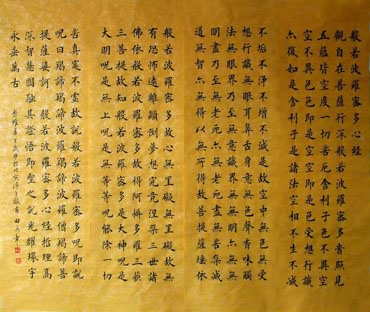 般若波羅密多心經
觀自在菩薩行深般若波羅密多時照見
五蘊皆空度一切苦厄舍利子色不異空
空不異色色即是空空即是色受想行識
亦復如是舍利子是諸法空相不生不滅
不垢不淨不增不減是故空中無色無受
想行識無眼耳鼻舌身意無色聲香味觸
法無眼界乃至無意識界無無明亦無無
明盡乃至無老死亦無老死盡無苦集滅
道無智亦無得以無所得故菩提薩埵依
般若波羅密多故心無罣礙無罣礙故無
有恐怖遠離顛倒夢想究竟涅槃三世諸
佛依般若波羅密多故得阿耨多羅三藐
三菩提故知般若波羅密多是大神咒是
大明咒是無上咒是無等等咒能除一切
苦真實不虛故說般若波羅密多咒即說
咒曰揭諦揭諦波羅揭諦波羅僧揭諦菩
提薩婆訶 般若波羅密多心經哲理高
深智慧圓融其證悟即聖之說光耀環宇
永垂萬古